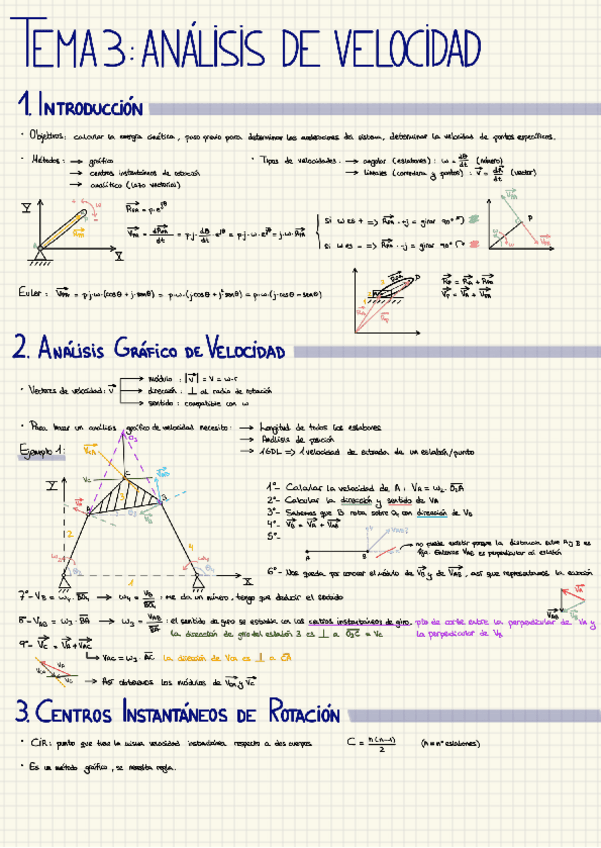 TEMA 3: ANÁLISIS DE VELOCIDAD
1. INTRODUCCIÓN
· Objetivos: calcular la energía cinética, paso previo para determinar las aceleraciones del sistema, determinar la velocidad de puntos específicos.
· Métodos: → gráfico
→ centros instantáneos de rotación
→ analítico (lazo vectorial)
· Tipos de velocidades: → angular (eslabones): ω = dθ/dt (número)
→ lineales (corredera y puntos): v = dR/dt (vector)
R_PA = p·e^jθ
V_PA = dR_PA/dt = p·j·dθ/dt · e^jθ = p·j·ω·e^jθ = j·ω·R_PA
si ω es + => R_PA · +j = girar 90°
si ω es - => R_PA · -j = girar 90°
Euler: V_PA = p·j·ω·(cosθ + j·senθ) = p·ω·(j·cosθ + j²·senθ) = p·ω·(j·cosθ - senθ)
R_P = R_A + R_PA
V_P = V_A + V_PA
2. ANÁLISIS GRÁFICO DE VELOCIDAD
· Vectores de velocidad: v
módulo: |v| = v = ω·r
dirección: ⊥ al radio de rotación
sentido: compatible con ω
· Para hacer un análisis gráfico de velocidad necesito: → Longitud de todos los eslabones
→ Análisis de posición
→ 1 GDL => 1 velocidad de entrada de un eslabón/punto
Ejemplo 1:
1º- Calcular la velocidad de A: V_A = ω₂·O₂A
2º- Calcular la dirección y sentido de V_A
3º- Sabemos que B rota sobre O₄ con dirección de V_B
4º- V_B = V_A + V_AB
5º-
no puede existir porque la distancia entre A y B es fija. Entonces V_AB es perpendicular al eslabón
6º- Nos queda por conocer el módulo de V_B y de V_AB, así que representamos la ecuación
7º- V_B = ω₄·BO₄ → ω₄ = V_B/BO₄ : me da un número, tengo que deducir el sentido
8º- V_AB = ω₃·BA → ω₃ = V_AB/BA : el sentido de giro se estudia con los centros instantáneos de giro. pto de corte entre la perpendicular de V_A y
la dirección de giro del eslabón 3 es ⊥ a O₃C = V_C la perpendicular de V_B
9º- V_C = V_A + V_AC
V_AC = ω₃·AC la dirección de V_CA es ⊥ a CA
→ Así obtenemos los módulos de V_CA y V_C
3. CENTROS INSTANTÁNEOS DE ROTACIÓN
· CIR: punto que tiene la misma velocidad instantánea respecto a dos cuerpos. C = n(n-1)/2 (n = nº eslabones)
· Es un método gráfico, se necesita regla.